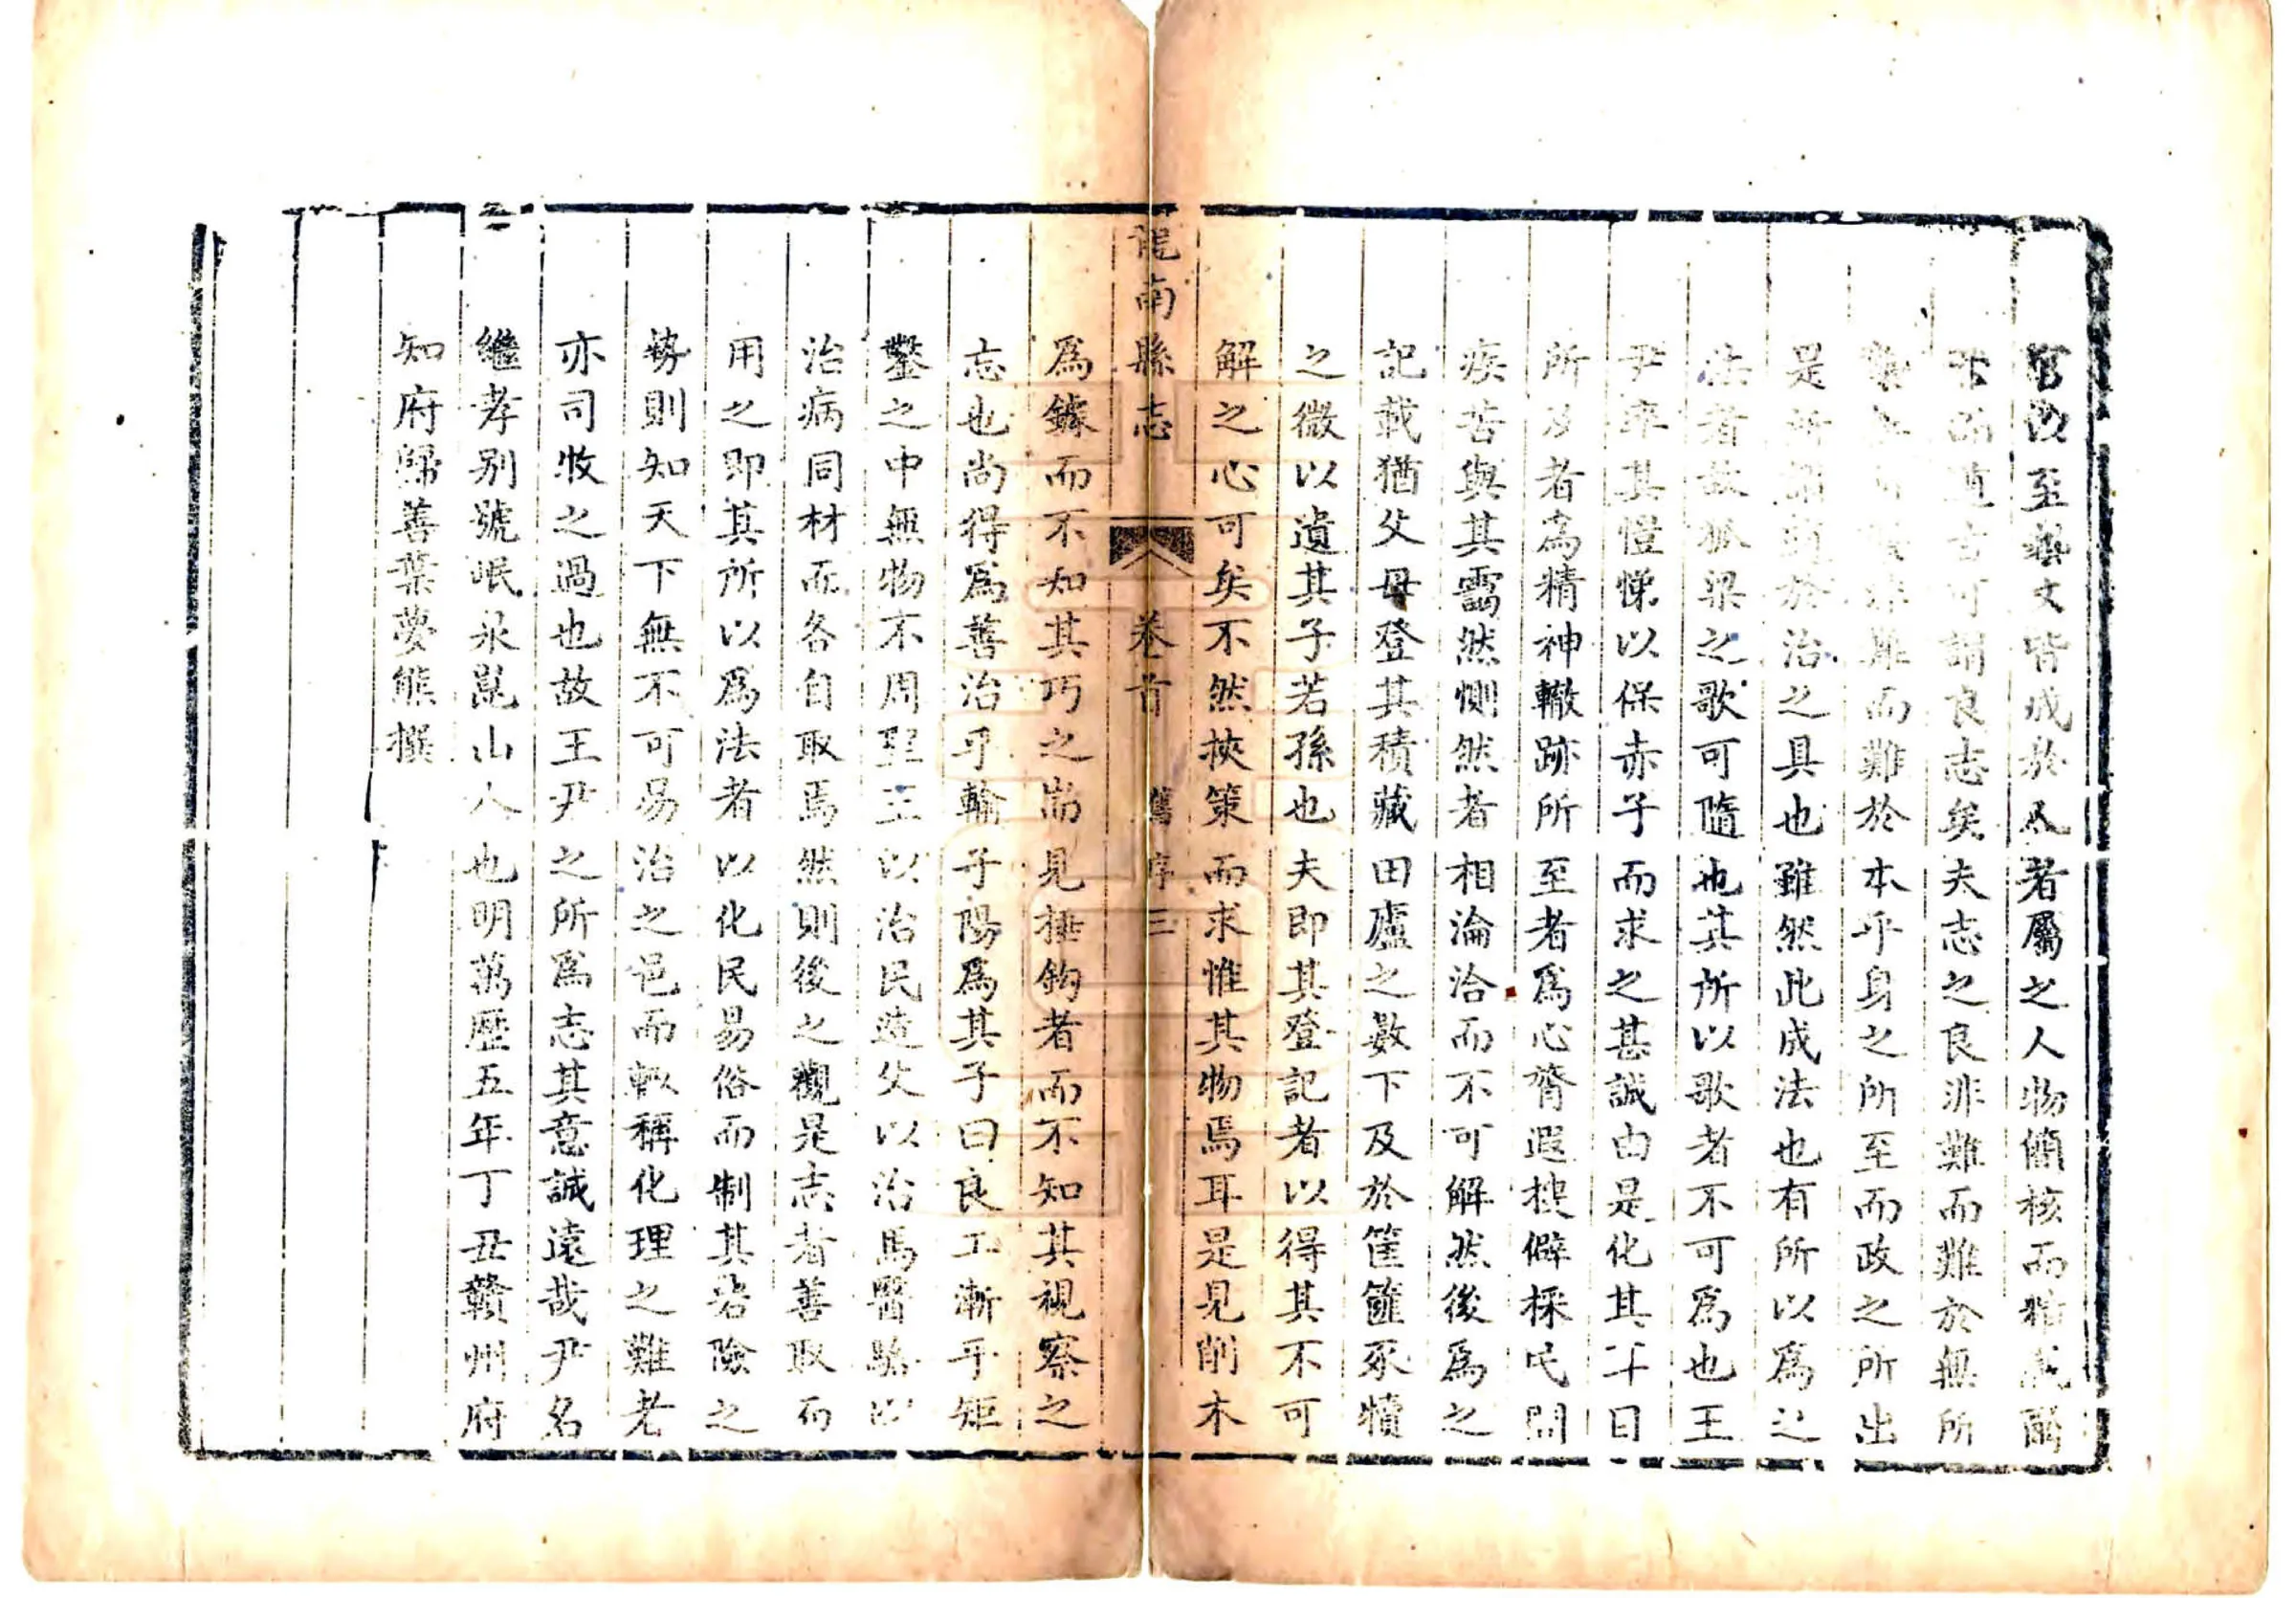 官政至藝文皆成於人者屬之人物簡核而
不道古可謂良志矣夫志之良非難而難於無所
難而難於本乎身之所至而政之所出
是所謂於治之具也雖然此成法也有所以為
法者故狐梁之歌可隨也其所以歌者不可為也王
尹率其愷悌以保赤子而求之甚誠由是化其日
所及者為精神轍跡所至者為心膂遐搜僻採民間
疾苦與其靄然惻然者相淪洽而不可解然後為之
記載猶父母登其積藏田廬之數下及於筐篚豕犢
之微以遺其子若孫也夫即其登記者以得其不可
解之心可矣不然挾策而求惟其物焉耳是見削木
龍南縣志 卷首 舊序 三
為鐻而不知其巧之耑見捶鉤者而不知其視察之
志也尚得為善治乎輪子陽為其子曰良工漸乎矩
鑿之中無物不周聖王以治民造父以治馬醫駱以
治病同材而各自取焉然則後之觀是志者善取而
用之即其所以為法者以化民易俗而制其岩險之
勢則知天下無不可易治之邑而輒稱化理之難者
亦司牧之過也故王尹之所為志其意誠遠哉尹名
繼孝別號岷泉崑山人也明萬歷五年丁丑贛州府
知府歸善葉夢熊撰